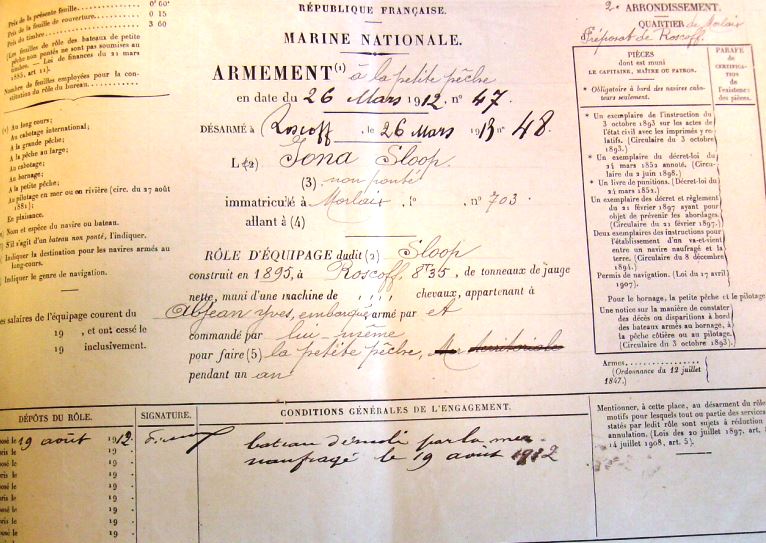 Prix de la présente feuille 0 60
Prix de la feuille de couverture 0 15
Prix du timbre 3 60
(Les feuilles de rôle des bateaux de petite
pêche non pontés ne sont pas soumises au
timbre. — Loi de finances du 22 mars
1885, art. 11).
Nombre de feuilles employées pour la con-
stitution du rôle du bureau.
(1) Au long cours;
Au cabotage international;
A la grande pêche;
A la pêche au large;
Au cabotage;
Au bornage;
A la petite pêche;
Au pilotage en mer ou en rivière (circ. du 27 août
1881);
En plaisance.
(2) Nom et espèce du navire ou bateau.
(3) S'il s'agit d'un bateau non ponté, l'indiquer.
(4) Indiquer la destination pour les navires armés au
long-cours.
(5) Indiquer le genre de navigation.
es salaires de l'équipage courent du
19 , et ont cessé le
19 inclusivement.
RÉPUBLIQUE FRANÇAISE.
MARINE NATIONALE.
ARMEMENT(1) à la petite pêche
en date du 26 Mars 1912. n° 47.
DÉSARMÉ à Roscoff, le 26 Mars 1913 n° 48
L (2) Iona Sloop.
(3) non ponté
immatriculé à Morlaix, f° , n° 703.
allant à (4)
RÔLE D'ÉQUIPAGE dudit (2) Sloop
construit en 1895, à Roscoff, 8T35, de tonneaux de jauge
nette, muni d'une machine de chevaux, appartenant à
Jean Yves, embarqué, armé par et
commandé par lui-même
pour faire (5) la petite pêche, territoriale
pendant un an
2e ARRONDISSEMENT.
QUARTIER de Morlaix
Préposat de Roscoff
PIÈCES
dont est muni
LE CAPITAINE, MAÎTRE OU PATRON.
* Obligatoire à bord des navires cabo-
teurs seulement.
PARAFE
de
CERTIFICA-
TION
de
l'existence
des pièces.
* Un exemplaire de l'instruction du
3 octobre 1893 sur les actes de
l'état civil avec les imprimés y re-
latifs. (Circulaire du 3 octobre
1893.)
* Un exemplaire du décret-loi du
24 mars 1852 annoté. (Circu-
laire du 2 juin 1898.)
* Un livre de punitions. (Décret-loi du
24 mars 1852.)
Un exemplaire des décret et règlement
du 21 février 1897 ayant pour
objet de prévenir les abordages.
(Circulaire du 21 février 1897.)
Deux exemplaires des instructions pour
l'établissement d'un va-et-vient
entre un navire naufragé et la
terre. (Circulaire du 8 décembre
1894.)
Permis de navigation. (Loi du 17 avril
1907).
Pour le bornage, la petite pêche et le pilotage
Une notice sur la manière de constater
des décès ou disparitions à bord
des bateaux armés au bornage, à
la pêche côtière ou au pilotage.
(Circulaire du 3 octobre 1893.)
Armes
(Ordonnance du 12 juillet
1847.)
DÉPÔTS DU RÔLE.
SIGNATURE.
CONDITIONS GÉNÉRALES DE L'ENGAGEMENT.
osé le 19 août 1912
pris le 19
osé le 19
pris le 19
osé le 19
ris le 19
osé le 19
ris le 19
sé le 19
bateau démoli par la mer
naufragé le 19 août 1912
Mentionner, à cette place, au désarmement du rôle
motifs pour lesquels tout ou partie des services
statés par ledit rôle sont sujets à réduction
annulation. (Lois des 20 juillet 1897, art.
14 juillet 1908, art. 5).